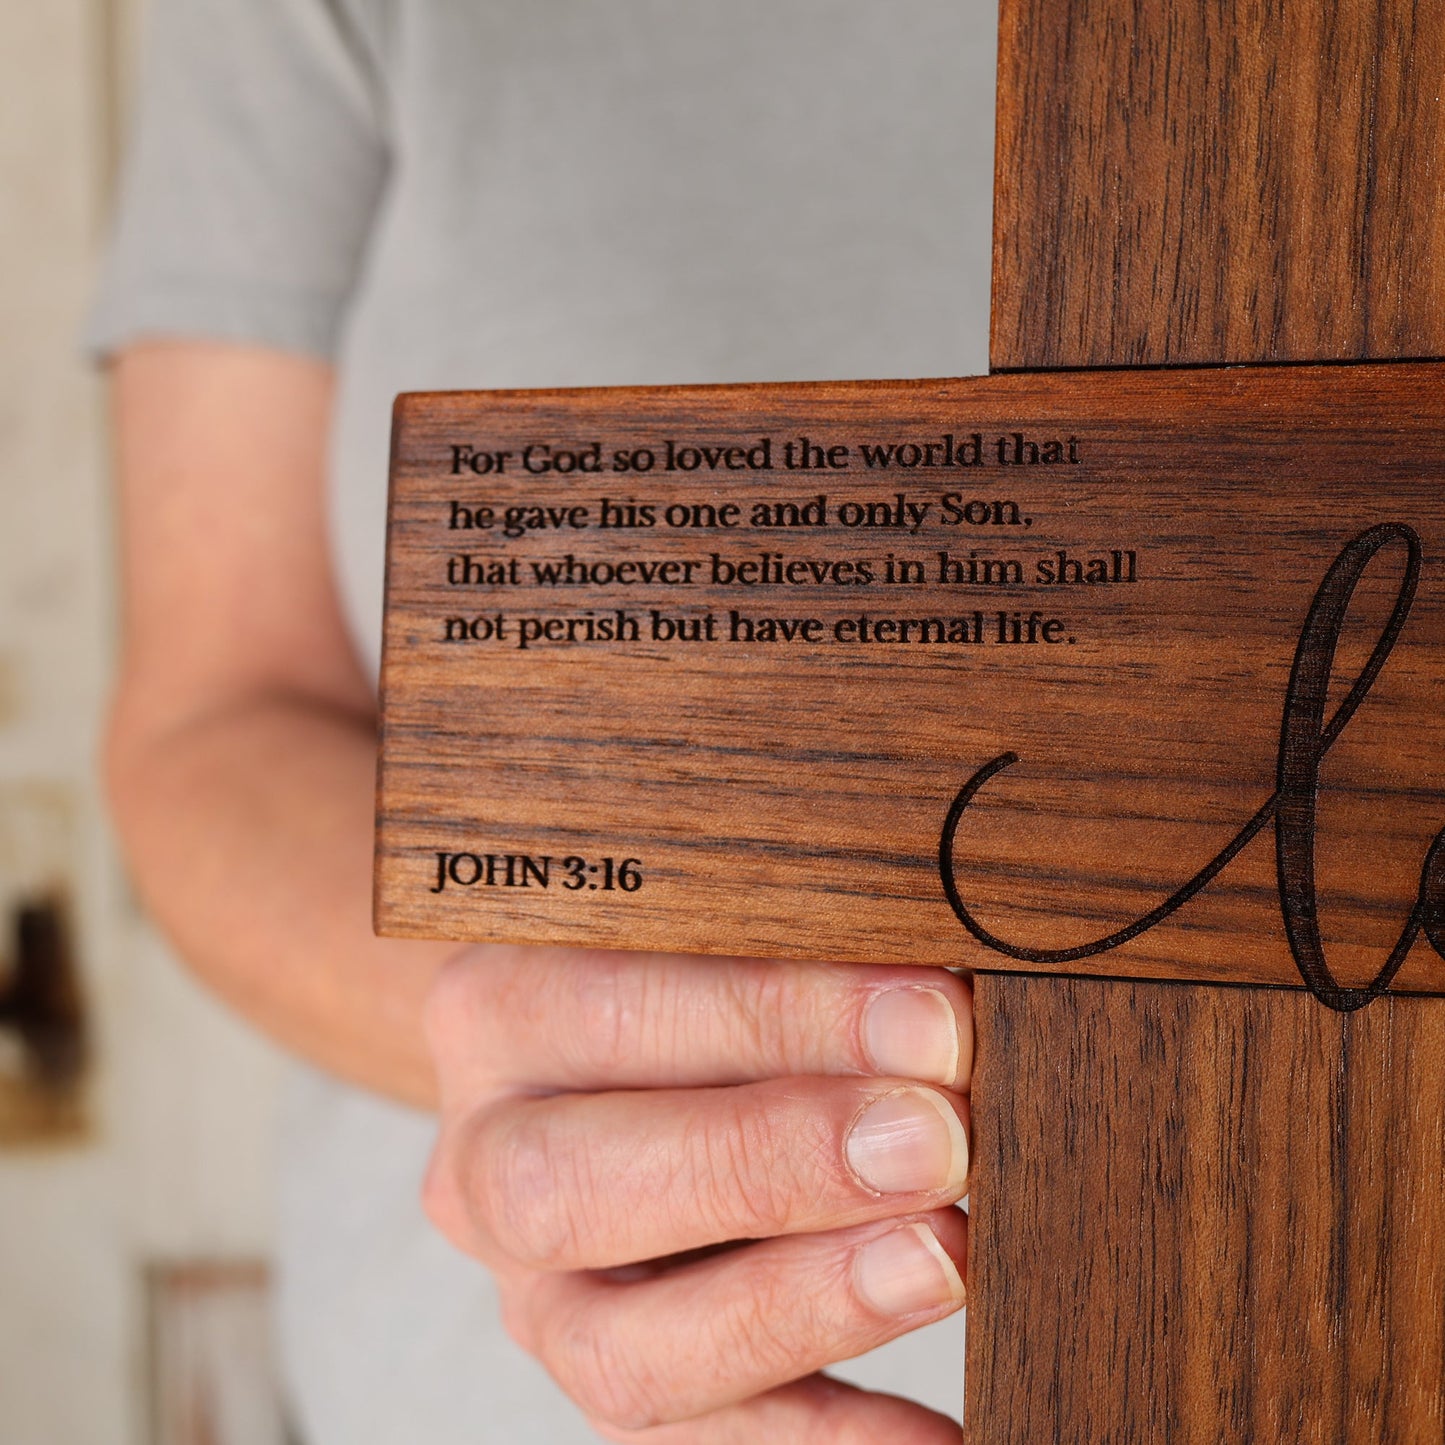 For God so loved the world that
he gave his one and only Son,
that whoever believes in him shall
not perish but have eternal life.
JOHN 3:16